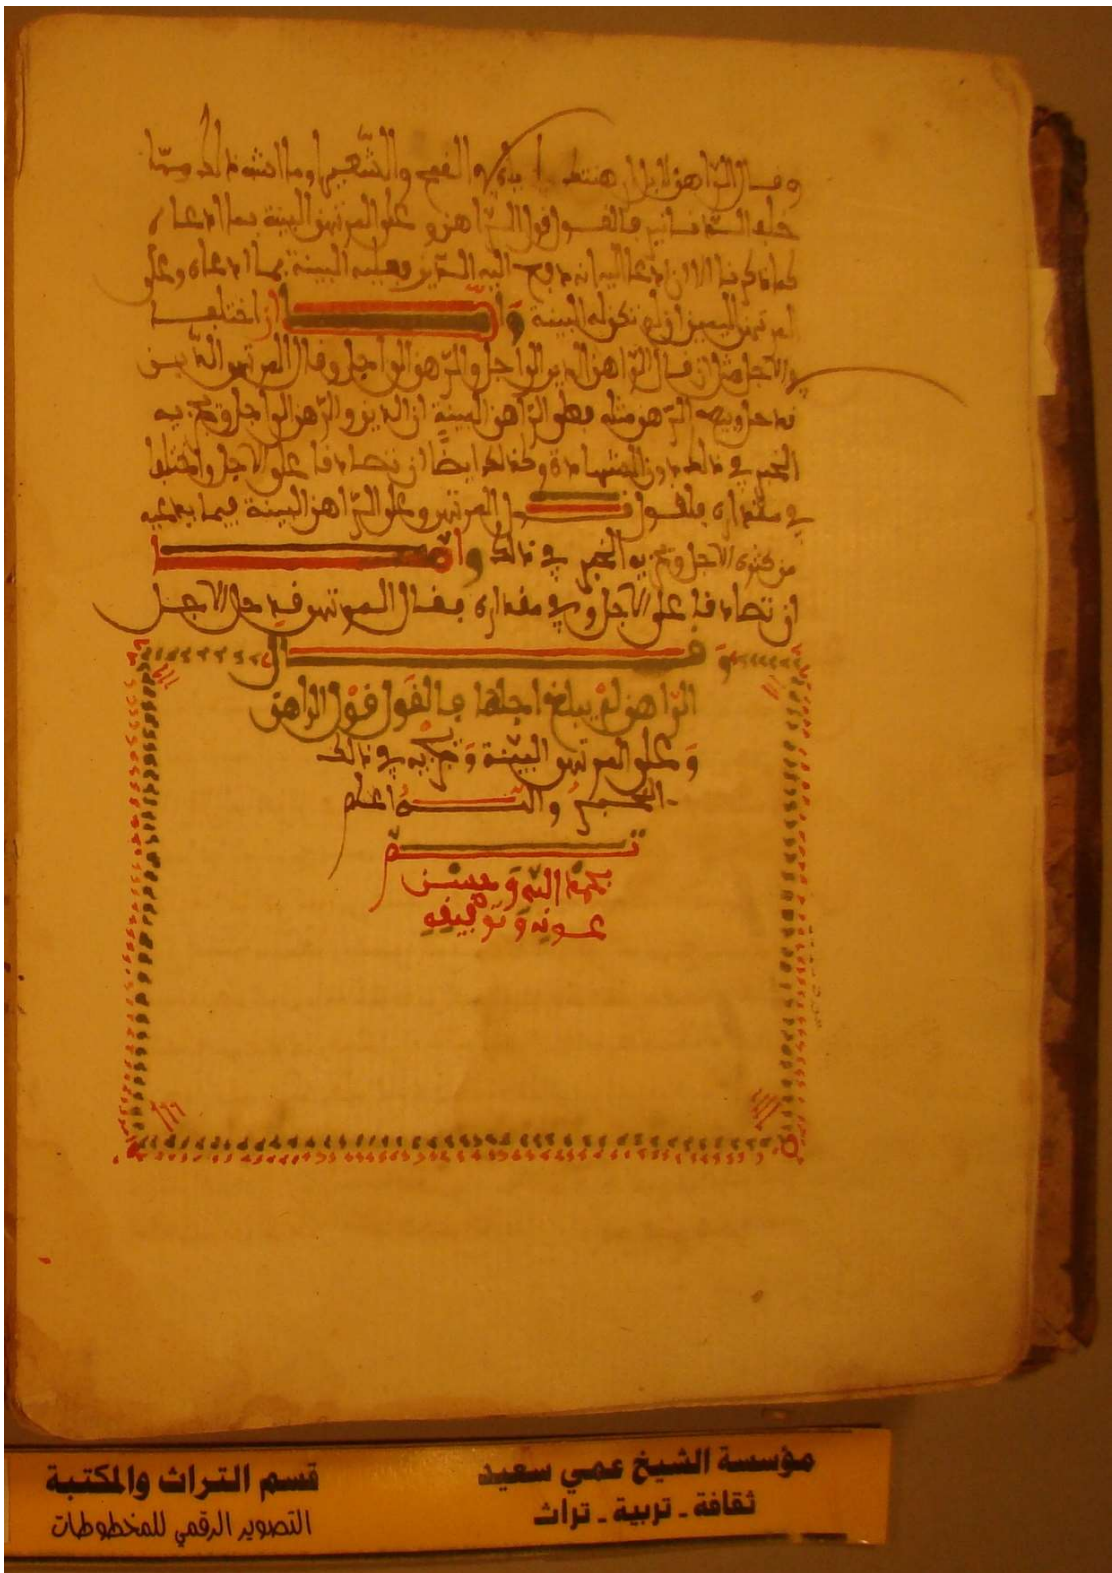 وقال الراهن لا بل رهنته في القمح والشعير وما اشبه ذلك مما
خلف الدنانير فالقول قول الراهن وعلى المرتهن البينة بما ادعاه
كما ذكرنا الا ان ادعا اليه انه دفع اليه الدين فعليه البينة بما ادعاه وعلى
المرتهن اليمين ان لم تكن له البينة وان اختلفا
في الاجل مثل ان قال الراهن الدين الى اجل والرهن الى اجل وقال المرتهن الدين
قد حل وبيع الرهن مثله فعلى الراهن البينة ان الدين والرهن الى اجل وتجزيه
الخبر في ذلك دون الشهادة وكذلك ايضا ان تصادقا على الاجل واختلفا
في مقداره فالقول قول المرتهن وعلى الراهن البينة فيما يدعيه
من كثرة الاجل وتجزيه الخبر في ذلك واما
ان تصادقا على الاجل وفي مقداره فقال المرتهن قد حل الاجل
وقال
الراهن لم يبلغ اجلها فالقول قول الراهن
وعلى المرتهن البينة وتجزيه في ذلك
الخبر والله اعلم
تم
بحمد الله وحسن
عونه وتوفيقه
مؤسسة الشيخ عمي سعيد
ثقافة ـ تربية ـ تراث
قسم التراث والمكتبة
التصوير الرقمي للمخطوطات